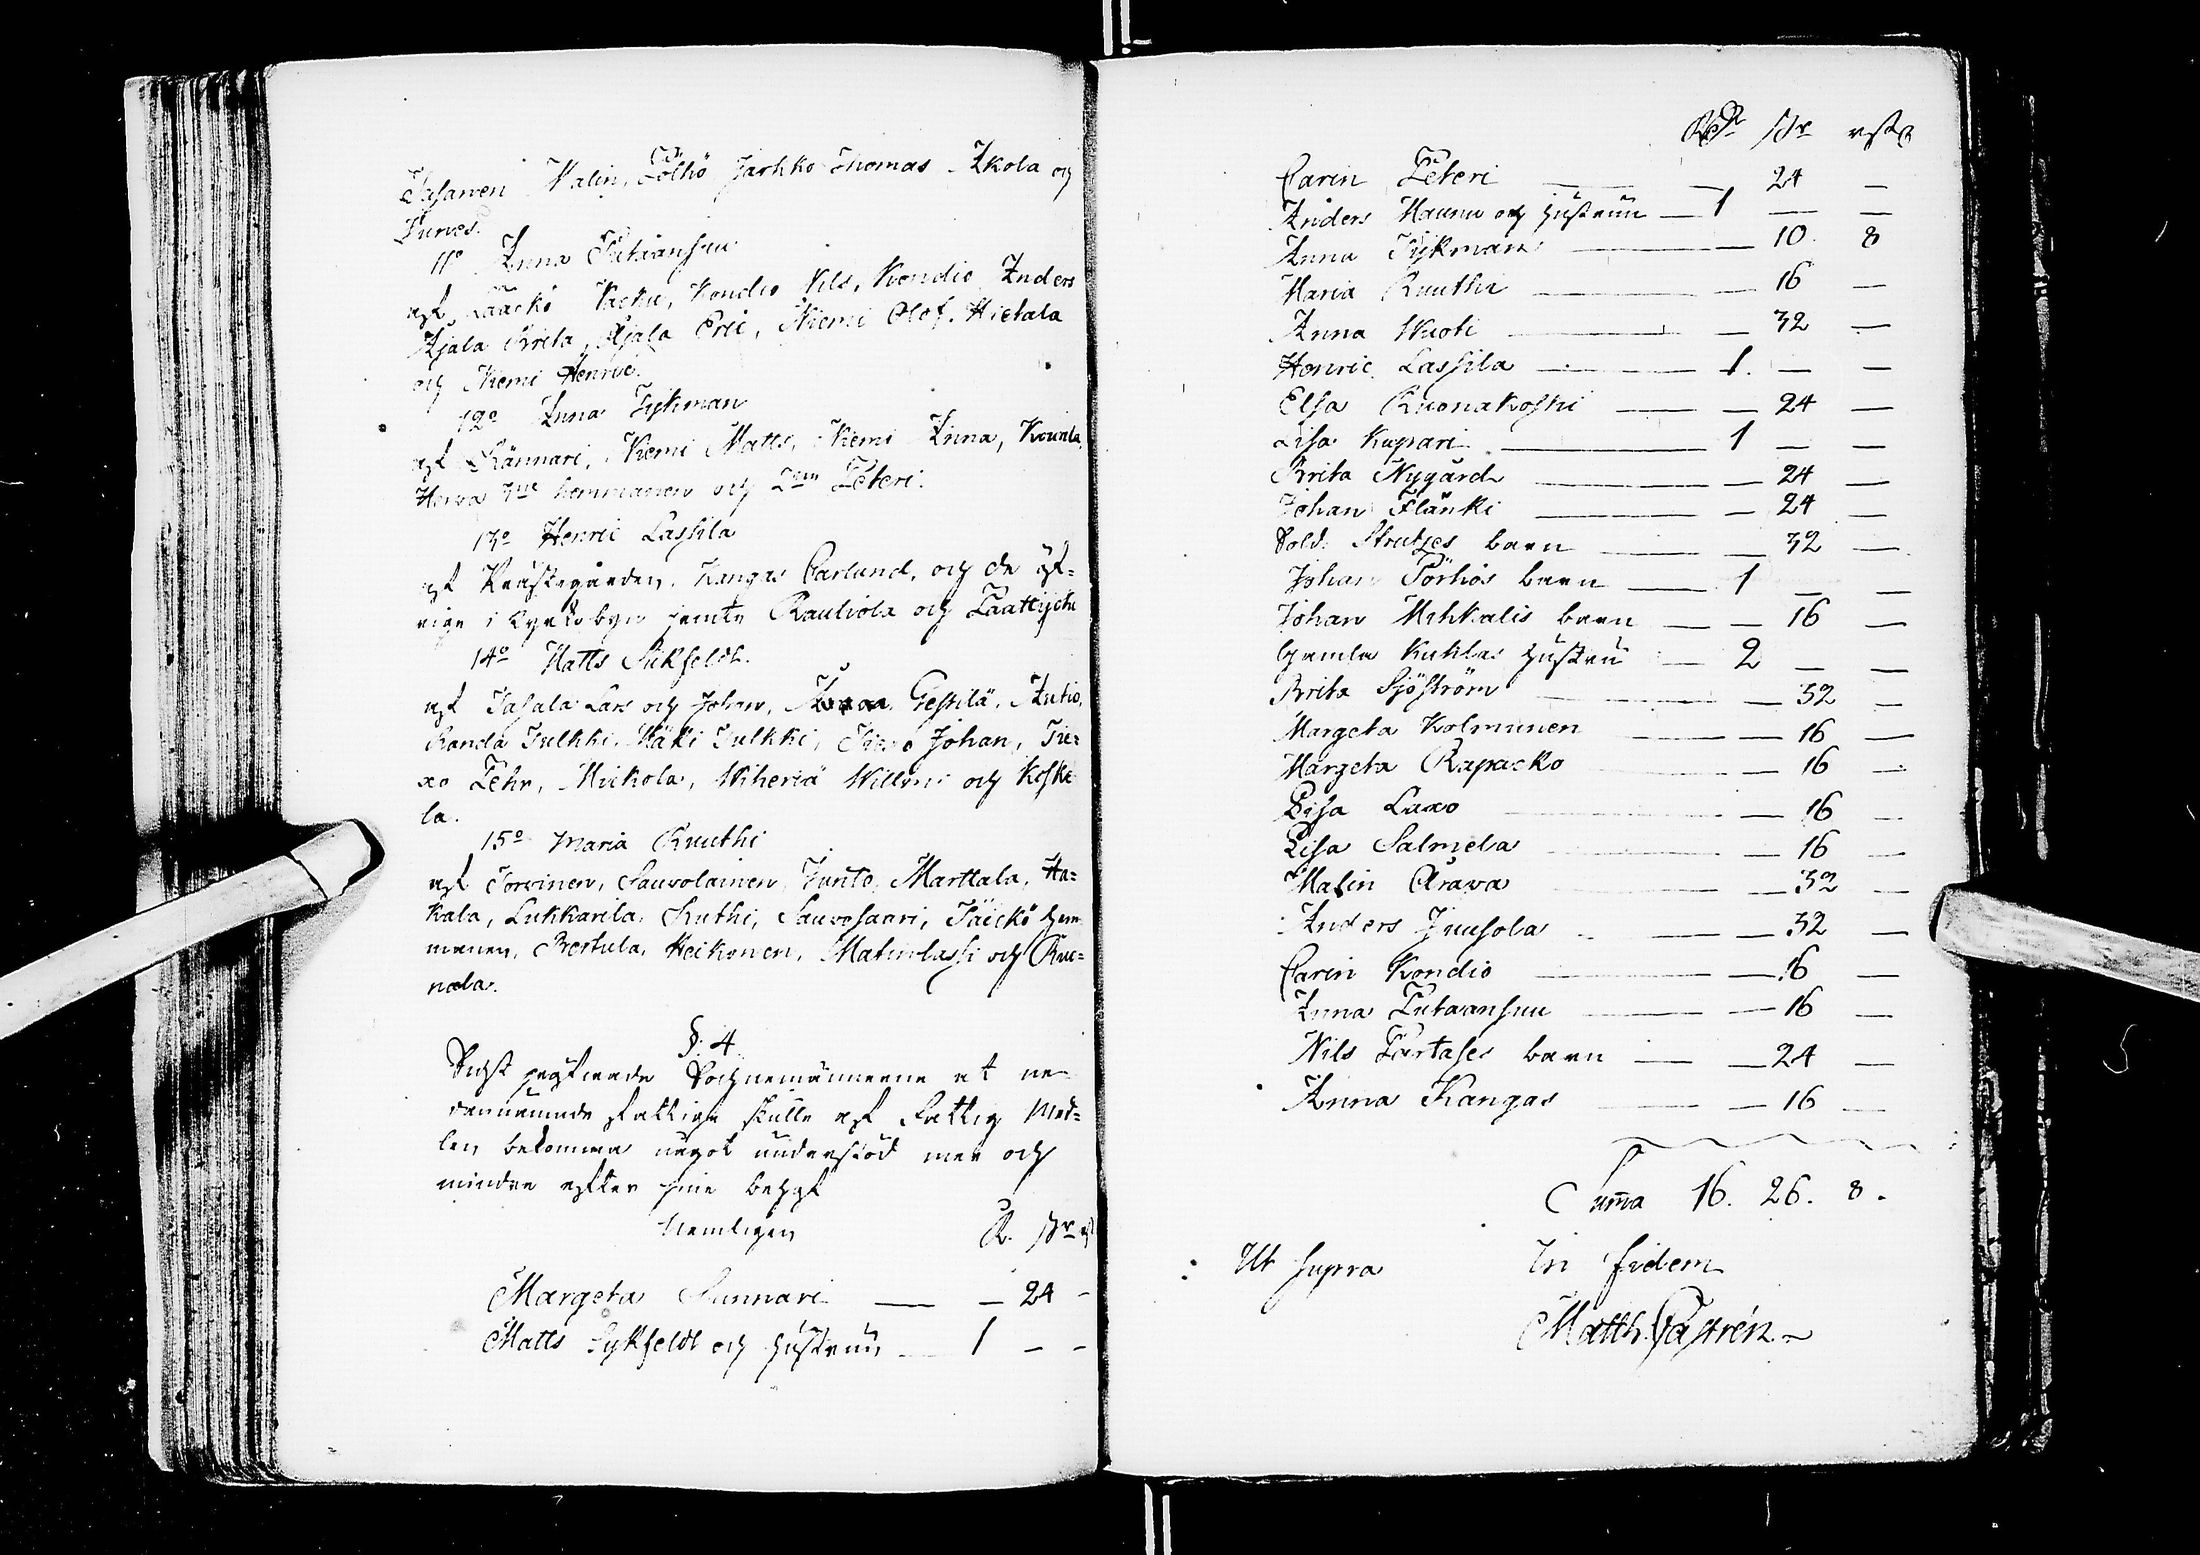 Jasarven Malin, Pölhö Jarkko Thomas Akola och
Purves.
11o Anna Putaansuu
af Laacko Kacku, Kondio Nils, Kondio Anders
Ajala Brita, Ajala Eric, Niemi Olof, Hietala
och Niemi Henric.
12o Anna Tykman
af Kännäri, Niemi Matts, Niemi Anna, Kourila,
Herva hemmanen och Peteri.
13o Henric Lassila
af Prästegården, Kangas Carlund, och de öf-
rige i Kyrkobyn jemte Rautiola och Laattijehu
14o Matts Sikfeldt.
af Jasala Lars och Johan, Gestilä, Autio,
Randa Tulkki, Mäki Tulkki, Johan, Tie-
xo Pehr, Mickola, Wiheriä Willoni och Koske
la.
15o Maria Ruuthi
af Torvinen, Sauvolainen, Junto, Marttala, Ha-
kala, Lukkarila, Ruthi, Sauvosaari, Jäickö hem
manen, Bertula, Heikonen, Matinlassi och Ruo-
nala.
§. 4.
Sidst Sochnemännerne at ne-
dannämnde fattige skulle af Fattig Med-
len bekomma något understöd mer och
mindre efter sine behof
Nemligen R. sk r
Margeta Sunnari — — 24 -
Matts Sykfeldt och Hustrun — 1 - -
Rdr sk rst
Carin Peteri — — 24 —
Anders Maunu och Hustrun — 1 — —
Anna Tykman — — 10. 8
Maria Ruuthi — — 16 —
Anna Wuoti — — 32 —
Henric Lassila — 1. — —
Elsa Ruonakoski — — 24 —
Lisa Kupari — 1 — —
Brita Nygård — — 24 —
Johan Flänki — — 24 —
Sold: Strutzes barn — — 32 —
Johan Pörhös barn — 1 — —
Johan Mihkalis barn — — 16 —
Gamla Kuklas Hustru — 2 — —
Brita Sjöström — — 32 —
Margeta Kolmunen — — 16 —
Margeta Rapacko — — 16 —
Lisa Laxo — — 16 —
Lisa Salmela — — 16 —
Malin Arava — — 32 —
Anders Juusola — — 32 —
Carin Kondio — — 16 —
Anna Putaansuu — — 16 —
Nils Partases barn — — 24 —
Anna Kangas — — 16 —
Sum̄a 16. 26. 8.
Ut supra In fidem
Matth. Castrén